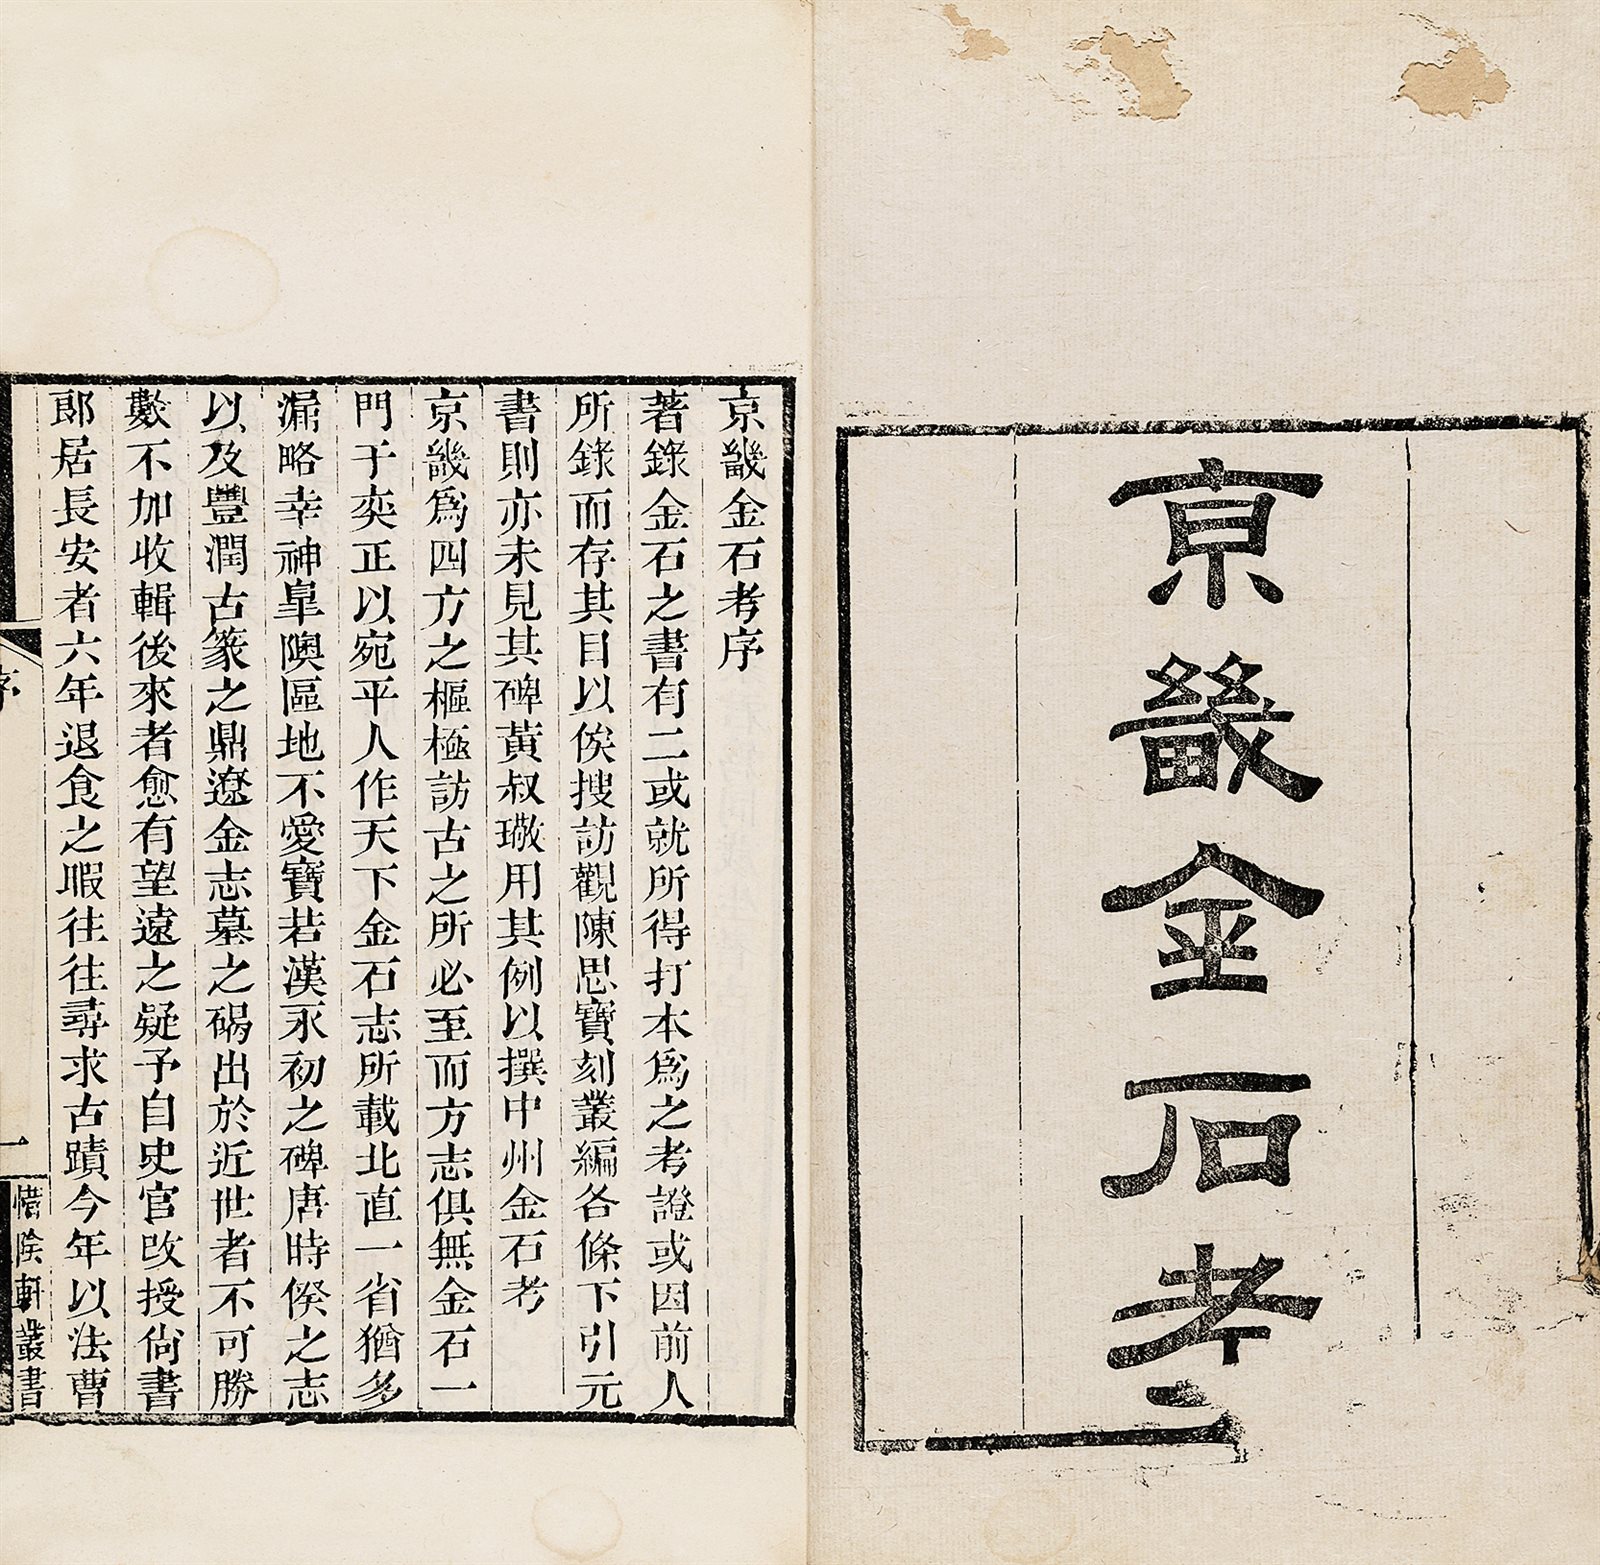 京畿金石考二
京畿金石考序
著錄金石之書有二或就所得打本爲之考證或因前人
所錄而存其目以俟搜訪觀陳思寶刻叢編各條下引元
書則亦未見其碑黃叔璥用其例以撰中州金石考
京畿爲四方之樞極訪古之所必至而方志俱無金石一
門于奕正以宛平人作天下金石志所載北直一省猶多
漏略幸神臯隩區地不愛寶若漢永初之碑唐時倏之志
以及豐潤古篆之鼎遼金志墓之碣出於近世者不可勝
數不加收輯後來者愈有望遠之疑予自史官改授尙書
郎居長安者六年退食之暇往往尋求古蹟今年以法曹
序
一
惜陰軒叢書